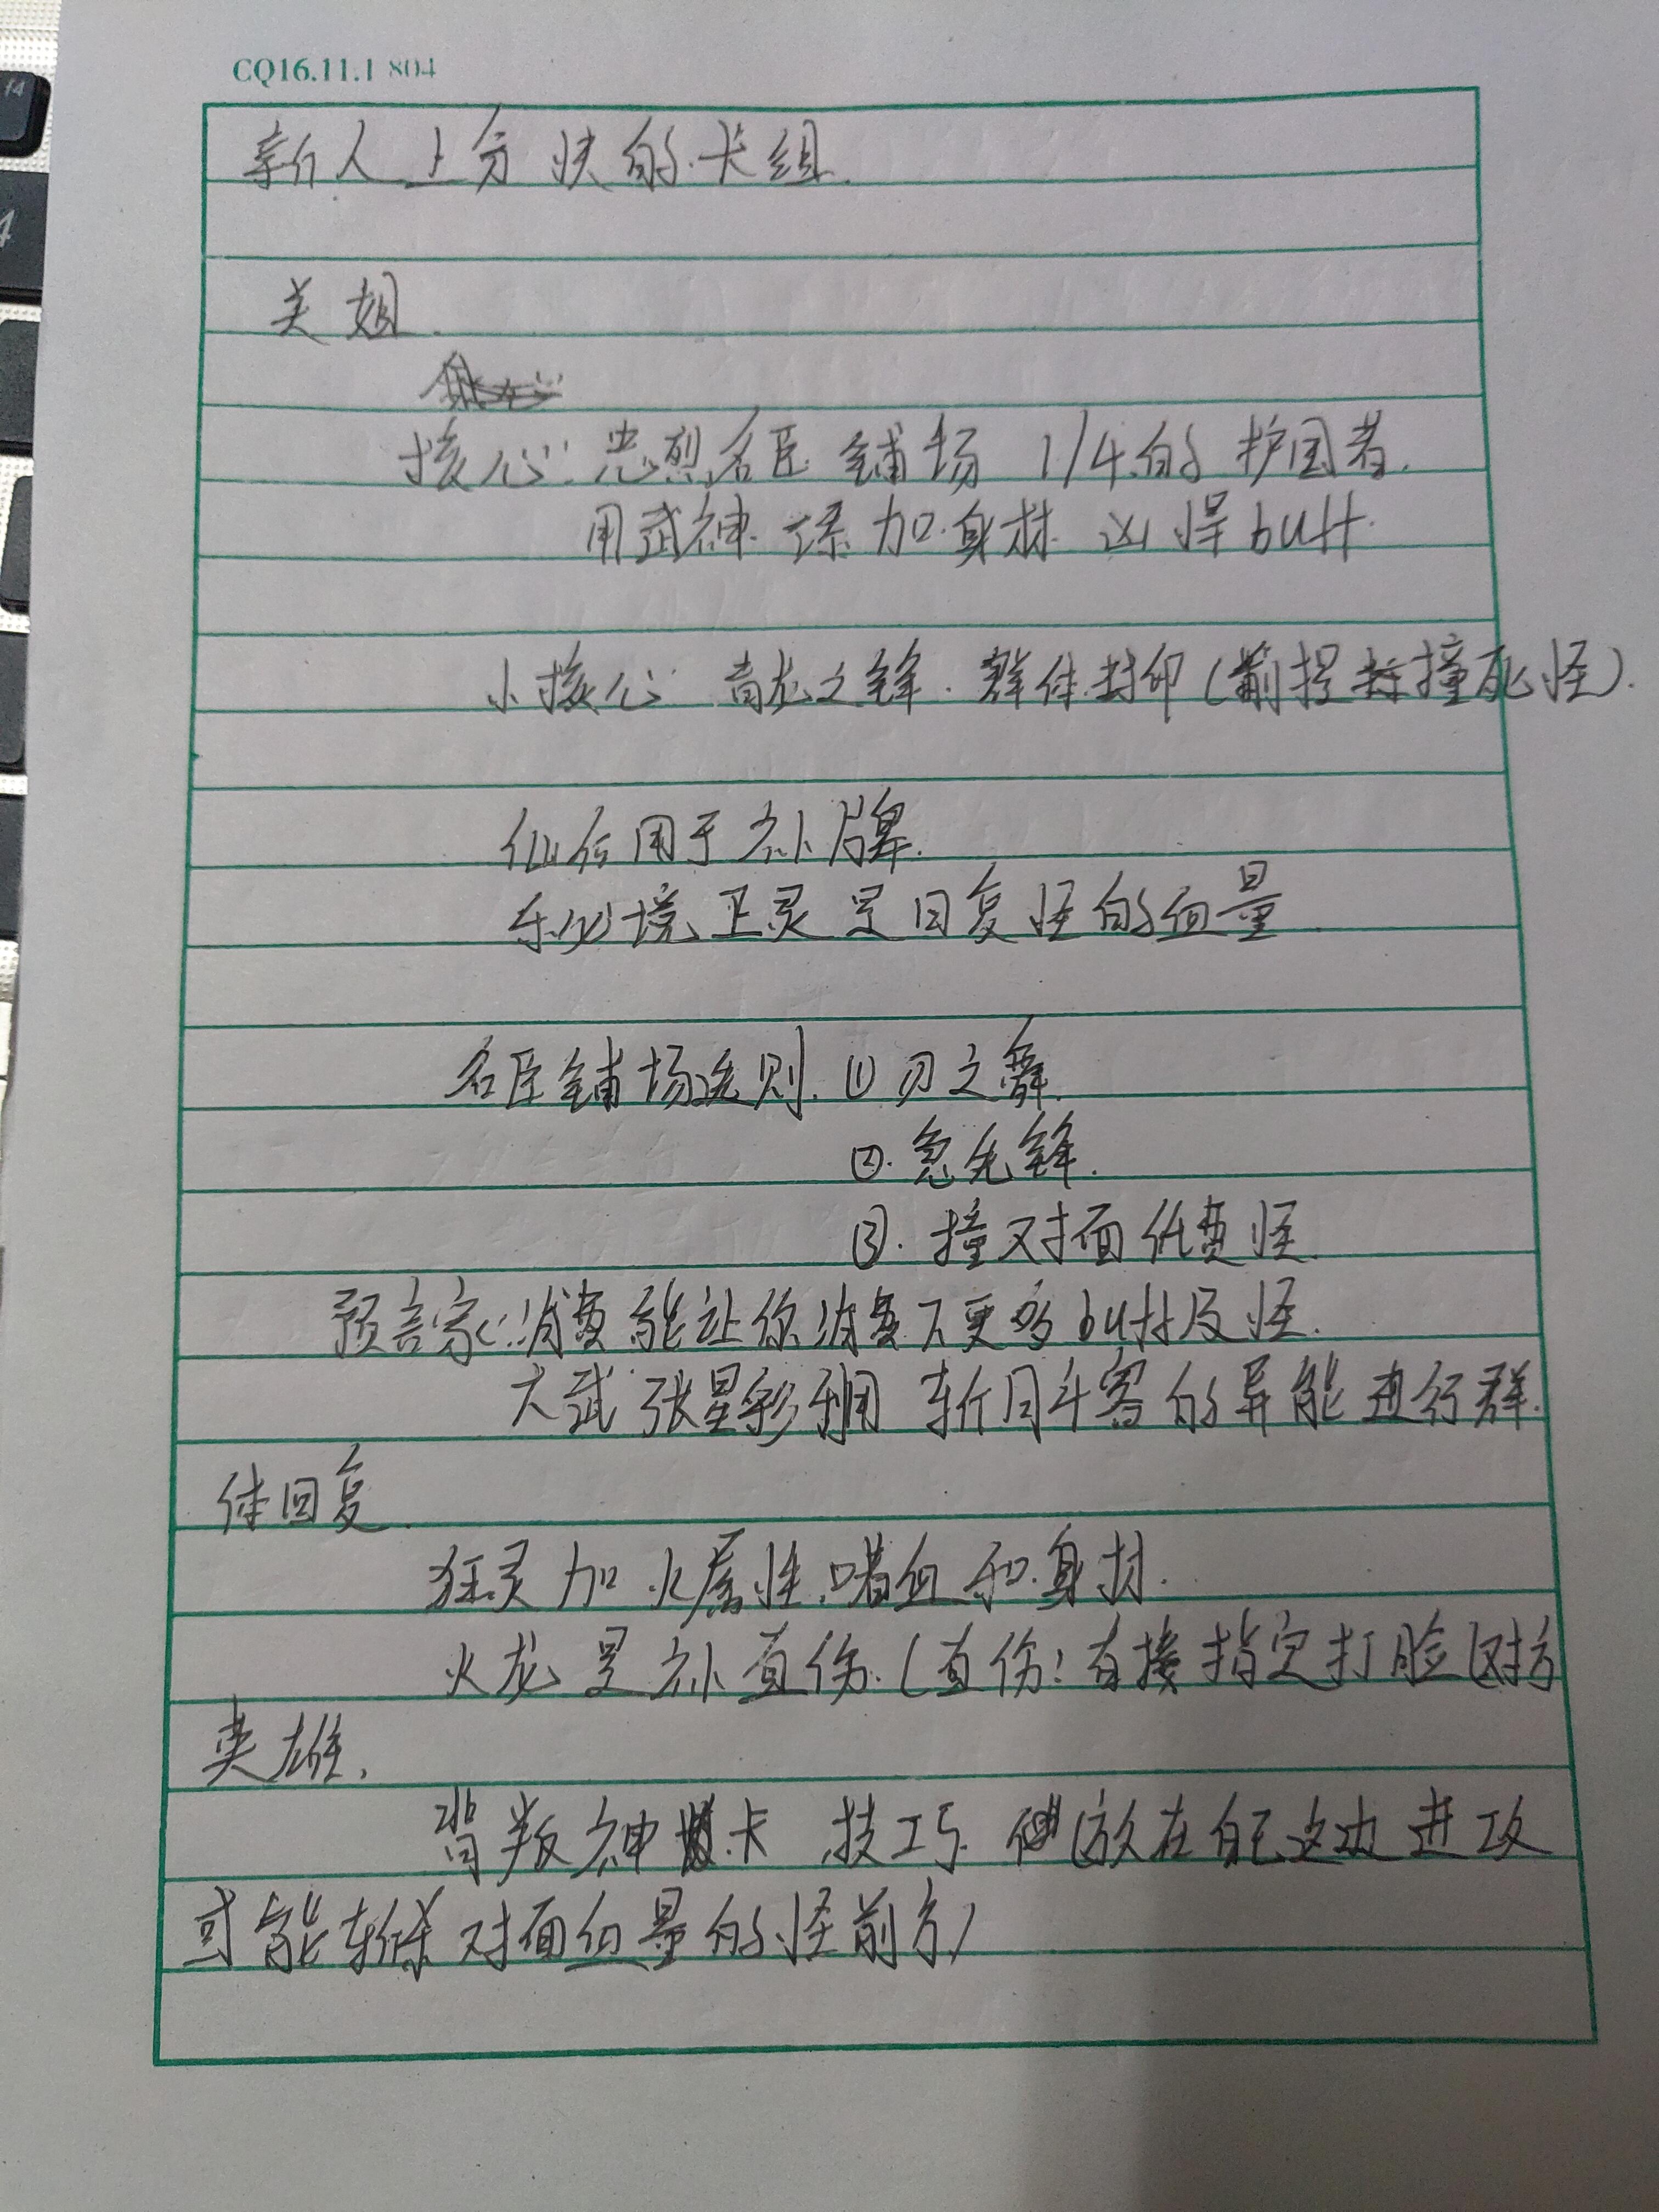 CQ16.11.1 804
新人上分快的卡组.
关姐.
核心:忠烈名臣 铺场 1/4的护国者.
用武神 瑛 加身材 凶悍buff.
小核心: 青龙之锋. 群体封印(前提撞死怪).
仙后用于补牌.
东必境卫灵是回复怪的血量
名臣铺场选则. ①刃之舞.
②.急先锋.
③.撞对面低费怪.
预言家:消费能让你消费下更多buff及怪.
大武张星彩利用 斩月斗客的异能进行群
体回复.
狂灵加火属性.嗜血和身材.
火龙是补直伤.(直伤:直接指定打脸(对方
英雄.
背叛神卡 技巧. (放在自己这边进攻
或能斩杀对面血量的怪前方)